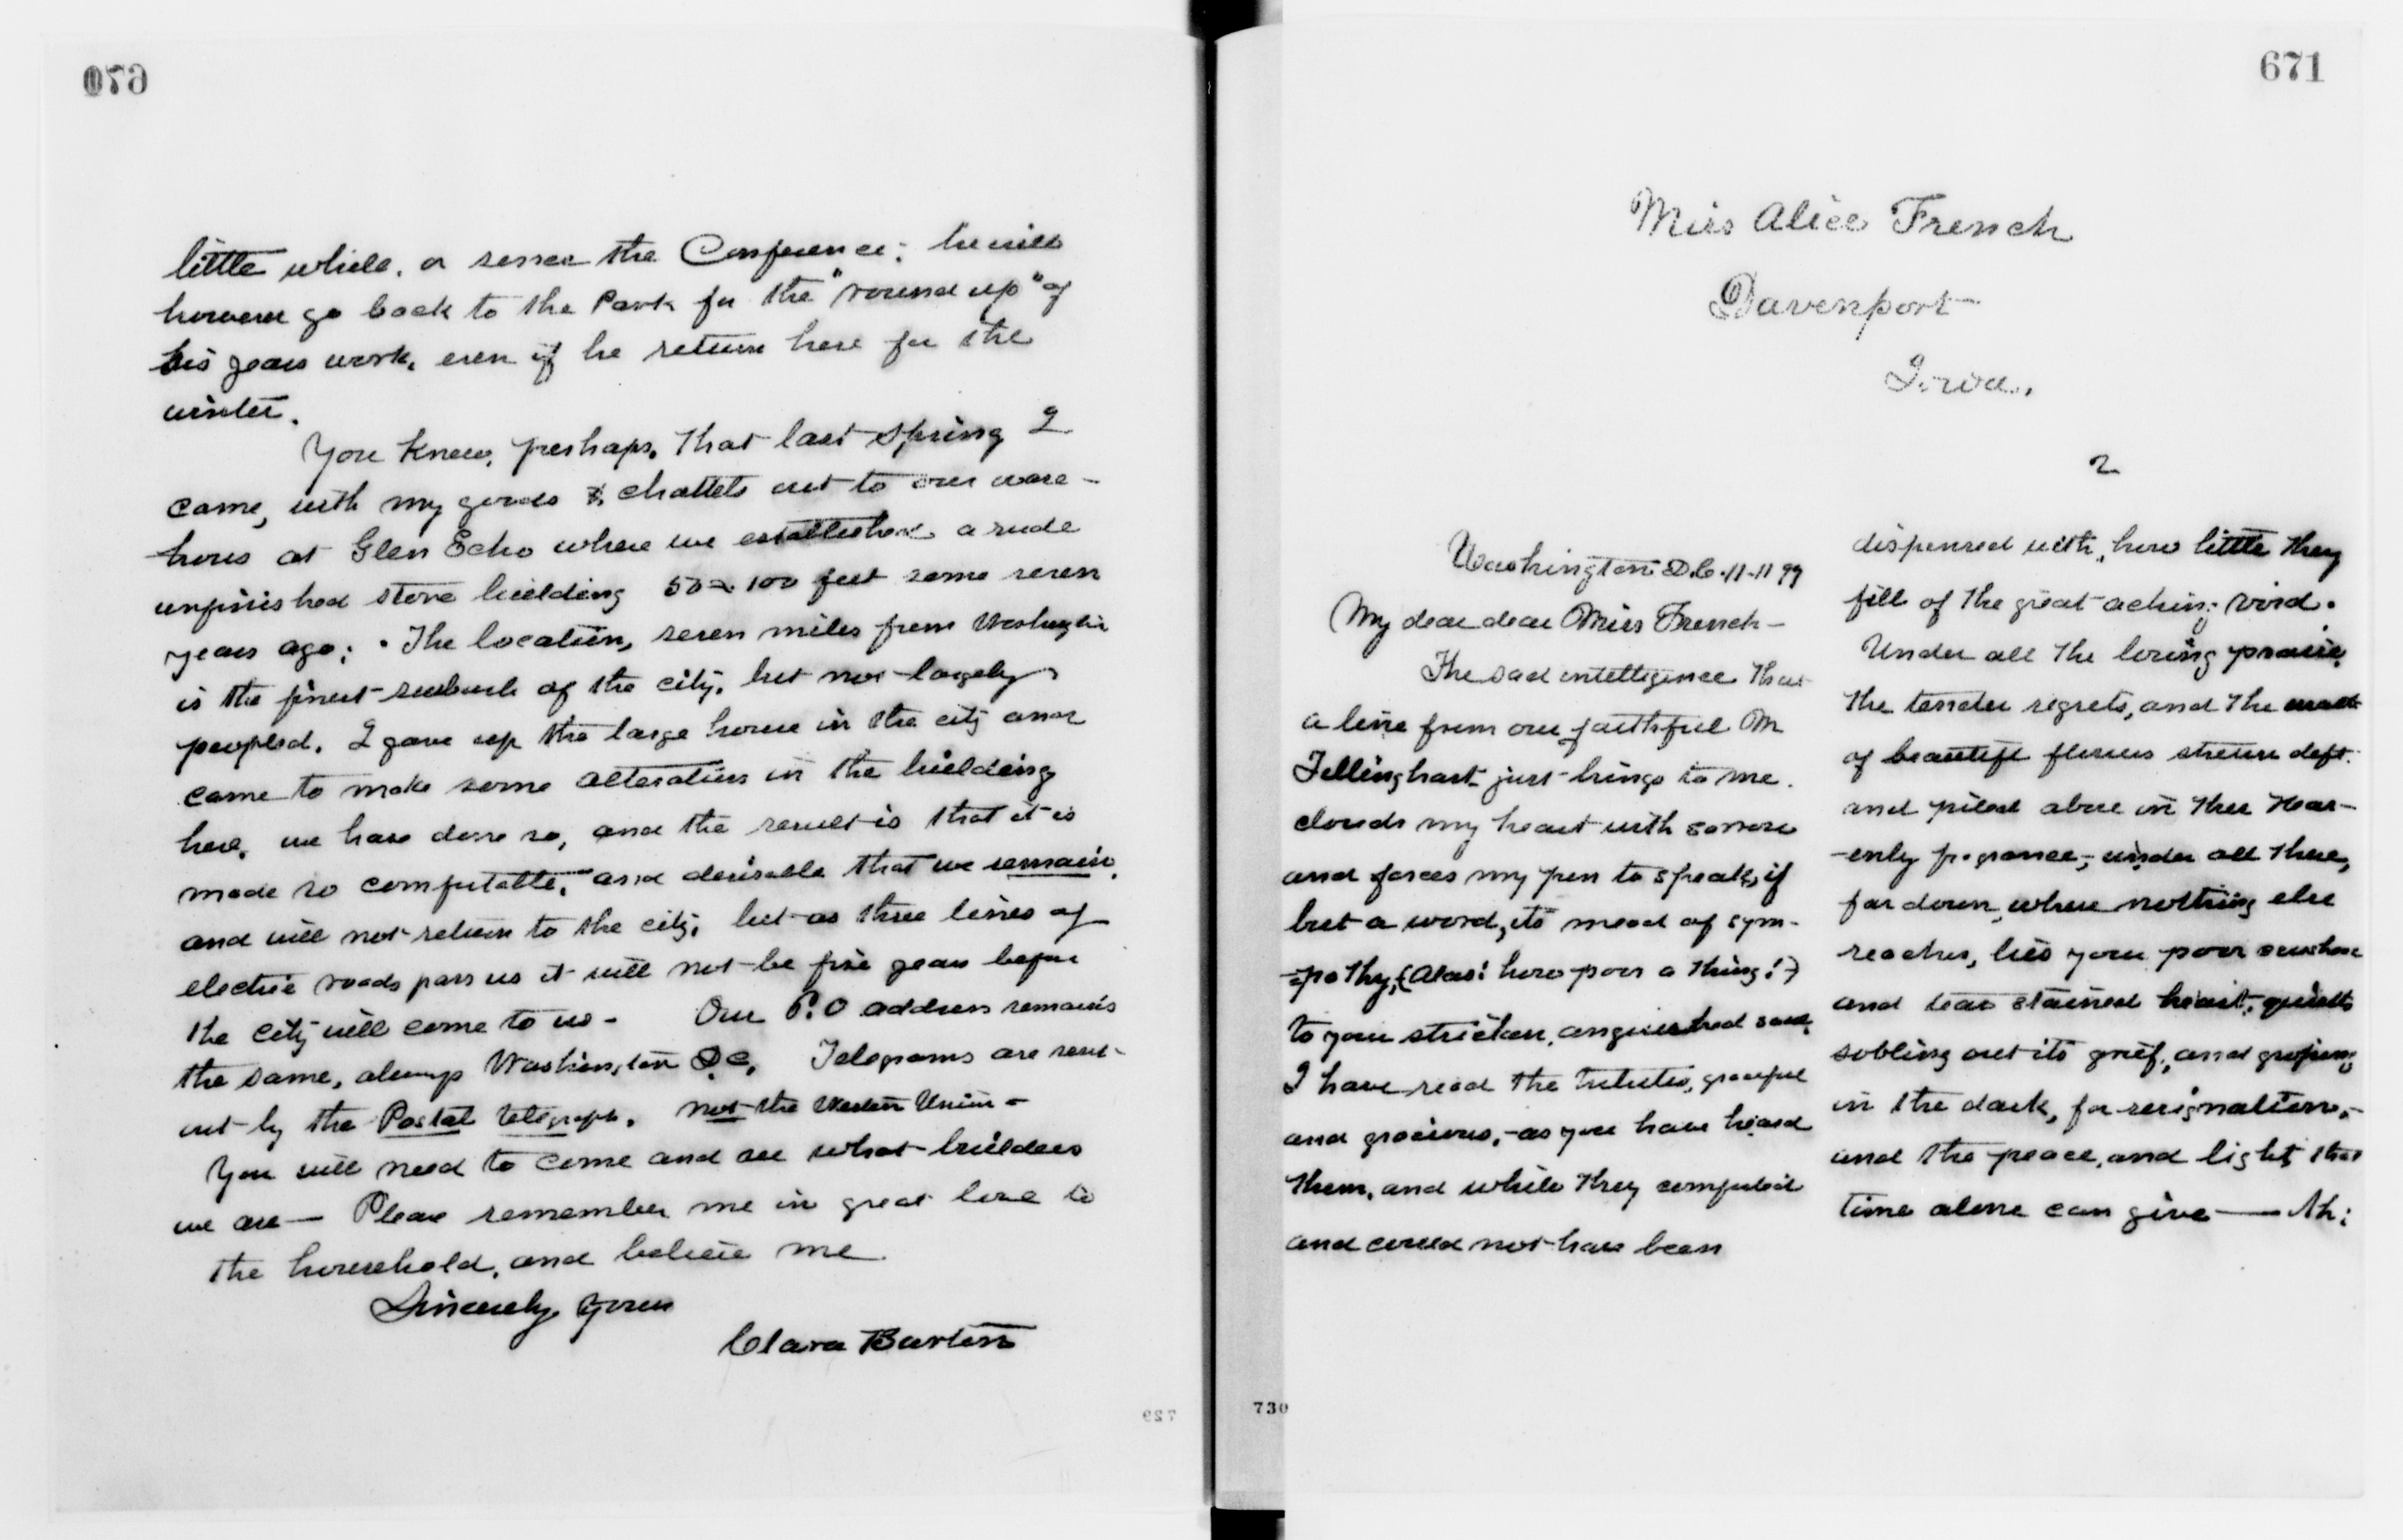 670
little while, or since the Conference; he will
however go back to the Park for the "round up" of
his years work, even if he return here for the
winter.
You knew, perhaps, that last spring I
came, with my goods & chattels out to our ware-
hous at Glen Echo where we established a rude
unfinished stone building 50 x 100 feet some seven
years ago; . The location, seven miles from Washington
is the finest suburb of the city, but not largely
peopled. I gave up the large house in the city and
came to make some alterations in the building
here, we have done so, and the result is that it is
made so comfortable, and desirable that we remain,
and will not return to the city, but as three lines of
electric roads pass us it will not be five years before
the city will come to us - Our P.O address remains
the same, always Washington D.C. Telegrams are sent
out by the Postal telegraph, not the Western Union -
You will need to come and see what builders
we are — Please remember me in great love to
the household, and believe me
Sincerely yours
Clara Barton
729
671
Miss Alice French
Davenport
Iowa.
Washington D.C. 11-11 99
My dear dear Miss French -
The sad intelligence that
a line from our faithful M
Tellinghast just brings to me
clouds my heart with sorrow
and forces my pen to speak, if
but a word, its mead of sym-
-pathy, (alas! how poor a thing!)
to your stricken, anguished soul,
I have read the tributes, graceful
and gracious, - as you have heard
them, and while they comforted
and could not have been
730
2
dispensed with, how little they
fill of the great aching void.
Under all the loving praise,
the tender regrets, and the
of beautiful flowers strewn deft
and piled above in their Heav-
-enly fragrance; under all these,
far down, where nothing else
reaches, lies your poor
and tear stained heart, quietly
sobbing out its grief, and groping
in the dark, for resignation, -
and the peace, and light that
time alone can give — Ah!